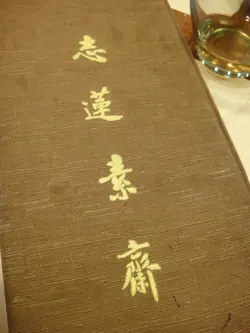 志蓮素齋